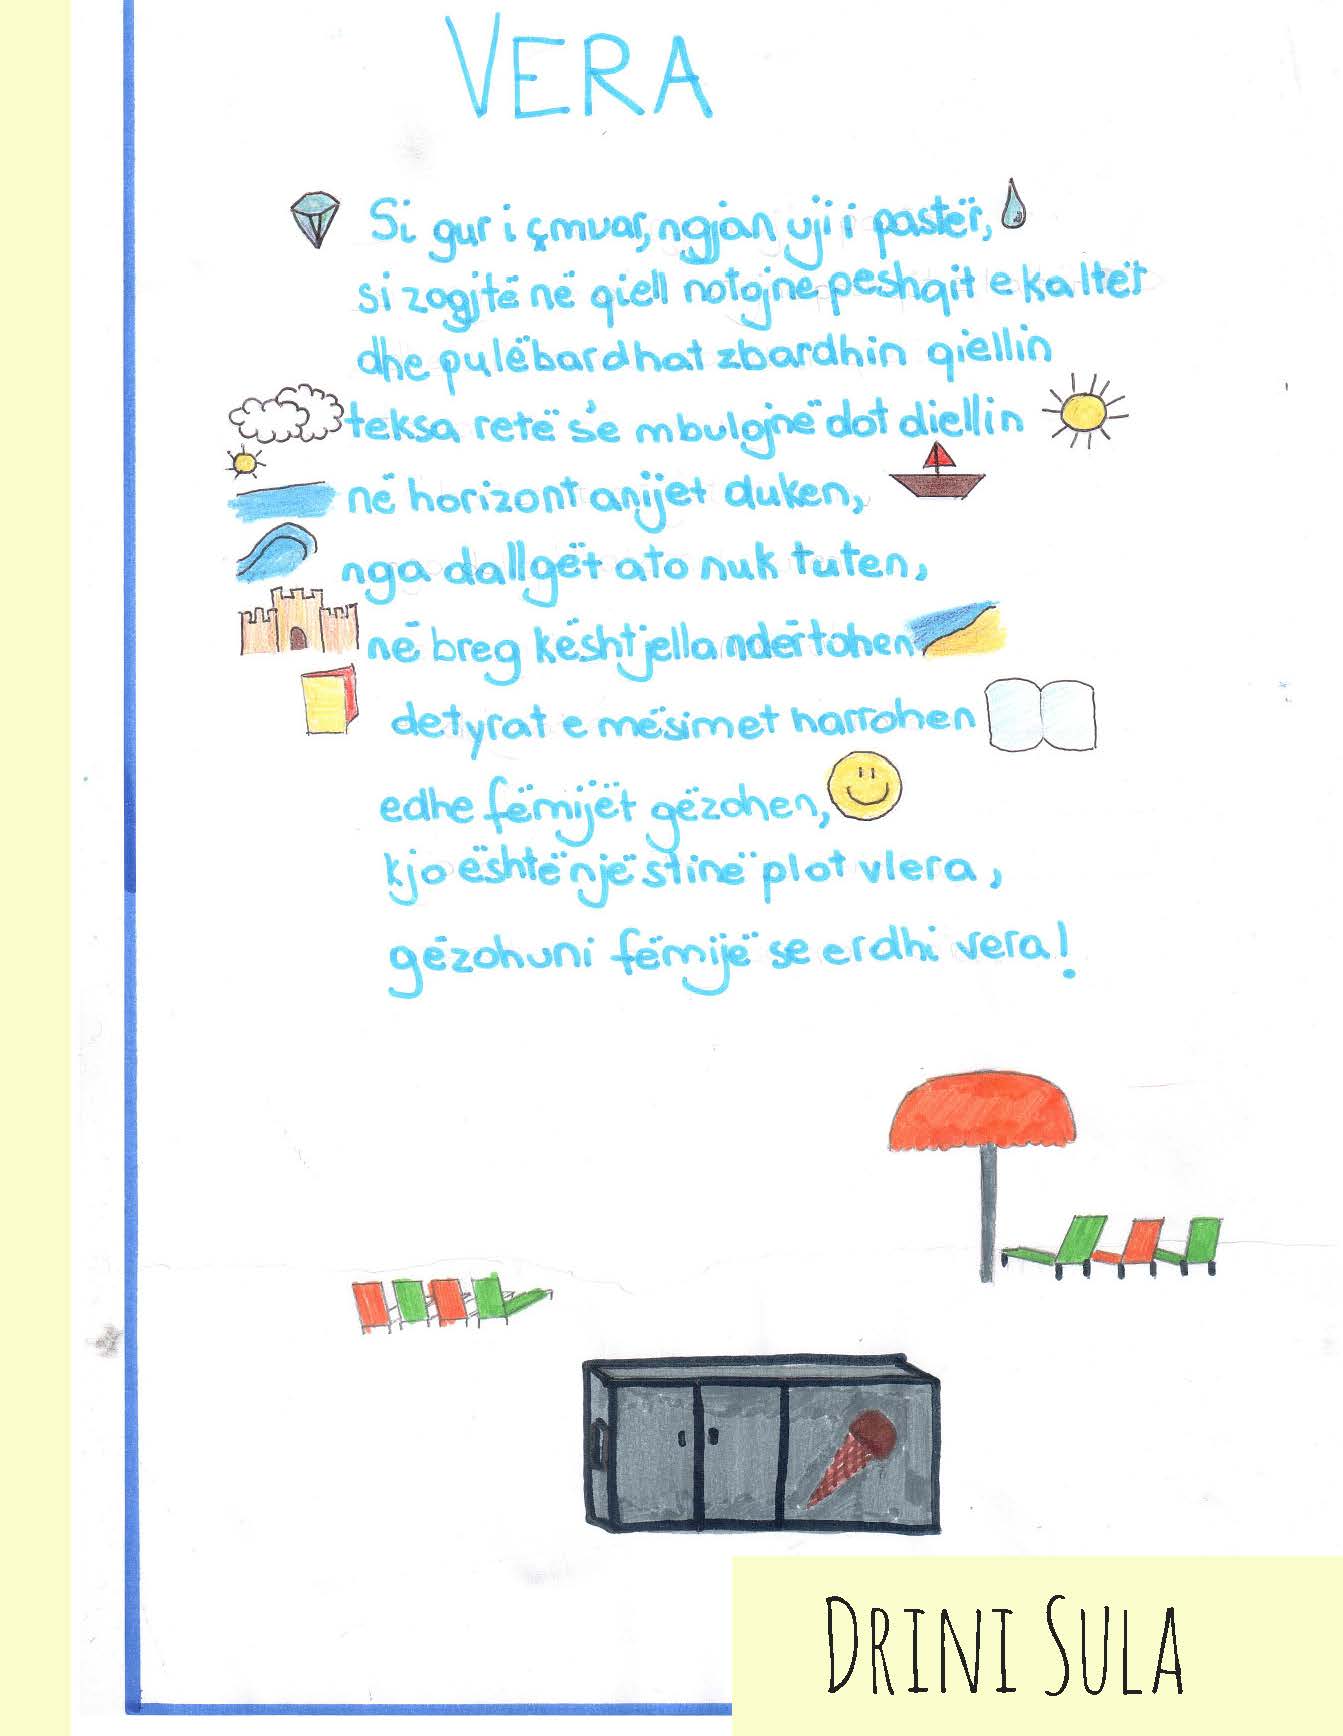 VERA
Si gur i çmuar, ngjan uji i pastër,
si zogjtë në qiell notojnë peshqit e kaltër
dhe pulëbardhat zbardhin qiellin
teksa retë s'e mbulojnë dot diellin
në horizont anijet duken,
nga dallgët ato nuk tuten,
në breg kështjella ndërtohen
detyrat e mësimet harrohen
edhe fëmijët gëzohen,
kjo është një stinë plot vlera,
gëzohuni fëmijë se erdhi vera!
DRINI SULA